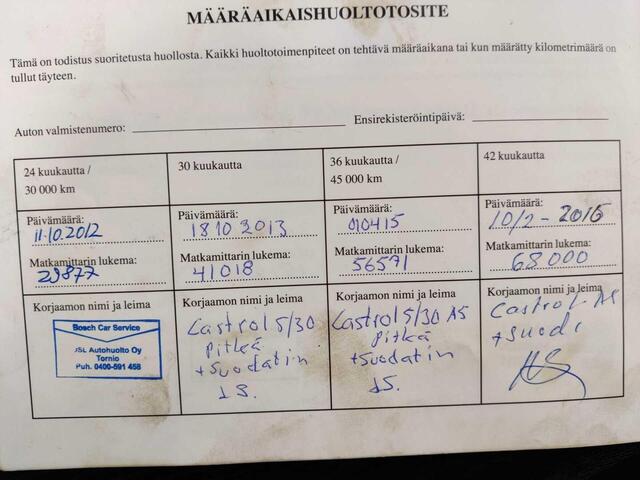 MÄÄRÄAIKAISHUOLTOTOSITE
Tämä on todistus suoritetusta huollosta. Kaikki huoltotoimenpiteet on tehtävä määräaikana tai kun määrätty kilometrimäärä on
tullut täyteen.
Auton valmistenumero:
Ensirekisteröintipäivä:
24 kuukautta /
30 000 km
30 kuukautta
36 kuukautta /
45 000 km
42 kuukautta
Päivämäärä:
11.10.2012
Päivämäärä:
18 10 2013
Päivämäärä:
010415
Päivämäärä:
10/2 - 2016
Matkamittarin lukema:
29877
Matkamittarin lukema:
41018
Matkamittarin lukema:
56571
Matkamittarin lukema:
68000
Korjaamon nimi ja leima
Bosch Car Service
JSL Autohuolto Oy
Tornio
Puh. 0400-591 458
Korjaamon nimi ja leima
Castrol 5/30
pitkä
+Suodatin
JS.
Korjaamon nimi ja leima
Castrol 5/30 AS
pitkä
+Suodatin
JS.
Korjaamon nimi ja leima
Castrol
+Suod